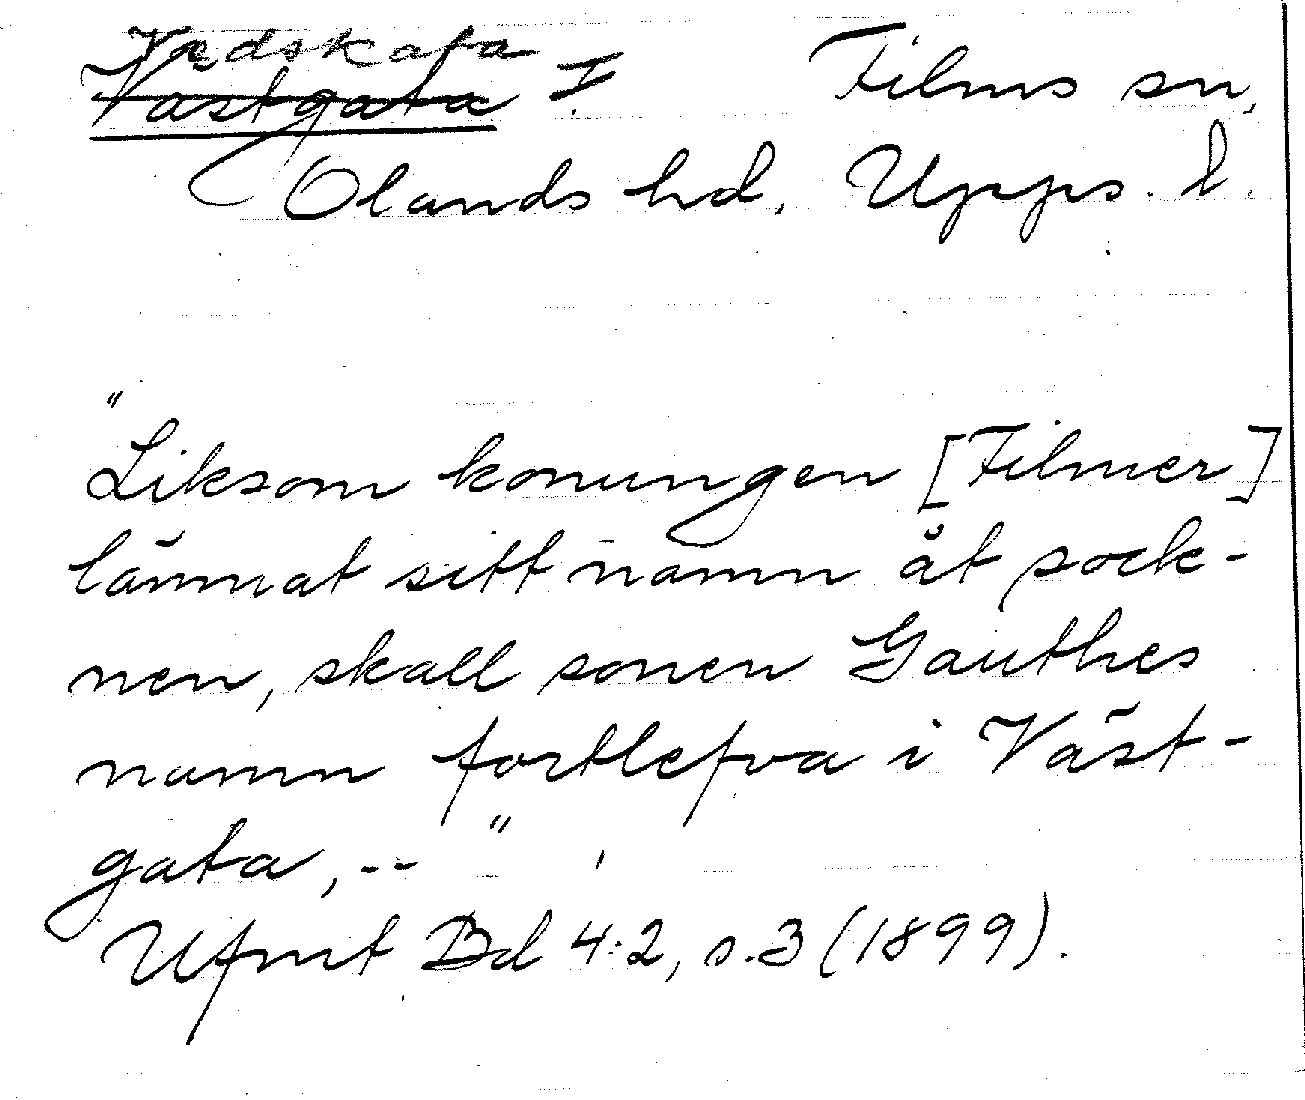 Vedskata
Västgata I. Films sn,
Olands hd. Upps. l.
"Liksom konungen [Filmer]
lämnat sitt namn åt sock-
nen, skall sonen Gauthes
namn fortlefva i Väst-
gata, -- "
Ufmt Bd 4:2, s.3 (1899).